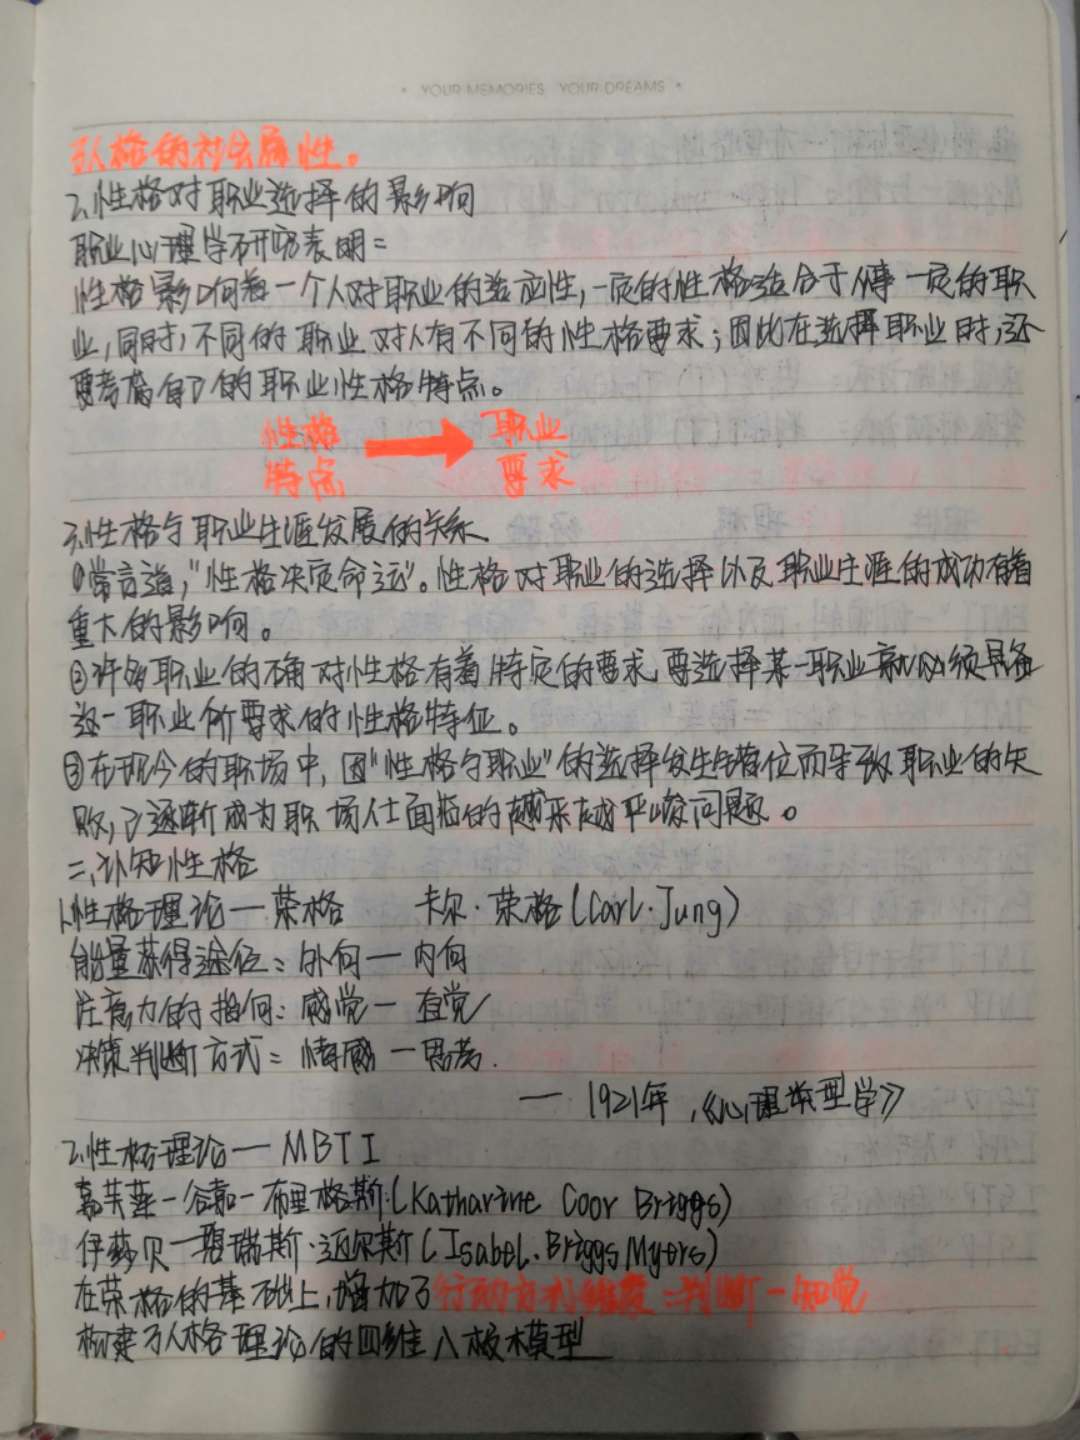 YOUR MEMORIES YOUR DREAMS
了人格的社会属性。
2、性格对职业选择的影响
职业心理学研究表明:
性格影响着一个人对职业的适应性,一定的性格适合于从事一定的职
业,同时,不同的职业对人有不同的性格要求;因此在选择职业时,还
要考虑自己的职业性格特点。
性格 职业
特点 要求
3、性格与职业生涯发展的关系
①常言道,"性格决定命运"。性格对职业的选择以及职业生涯的成功有着
重大的影响。
②许多职业的确对性格有着特定的要求,要选择某一职业就必须具备
这一职业所要求的性格特征。
③在现今的职场中,因"性格与职业"的选择发生错位而导致职业的失
败,已逐渐成为职场人士面临的越来越严峻问题。
二、认知性格
1、性格理论一荣格 卡尔·荣格(Carl·Jung)
能量获得途径:外向一内向
注意力的指向:感觉一直觉
决策判断方式:情感一思考.
— 1921年,《心理类型学》
2、性格理论—MBTI
(Katharine Coor Briggs)
伊莎贝一碧瑞斯·迈尔斯(Isabel.Briggs Myers)
在荣格的基础上,增加了行动方式维度:判断一知觉
构建了人格理论的四维八极木模型